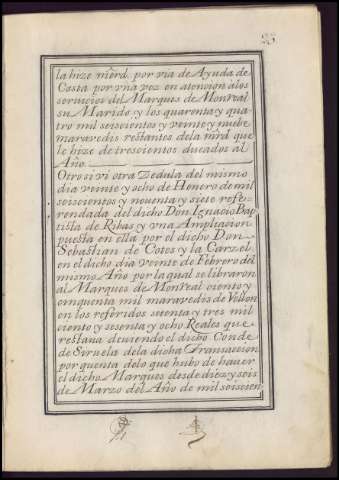 la hize mrd. por via de Ayuda de
Costa por vna vez en atencion alos
seruicios del Marques de Monreal
su Marido y los quarenta y qua
tro mil seiscientos y veinte y nuebe
maravedis restantes dela mrd que
le hize de trescientos ducados al
Año.
Otro si vi otra Zedula del mismo
dia veinte y ocho de Henero de mil
seiscientos y nouenta y siete refe-
rendada del dicho Don Ignacio Bap
tista de Ribas y vna Ampliacion
puesta en ella por el dicho Don
Sebastian de Cotes y la Carzel
en el dicho dia veinte de Febrero del
mismo Año por la qual se libraron
al Marques de Monreal ciento y
cinquenta mil maravedis de Vellon
en los referidos setenta y tres mil
ciento y sesenta y ocho Reales que
restaua deuiendo el dicho Conde
de Siruela dela dicha Transaccion
por quenta delo que hubo de hauer
el dicho Marques desde diez y seis
de Marzo del Año de mil seiscien